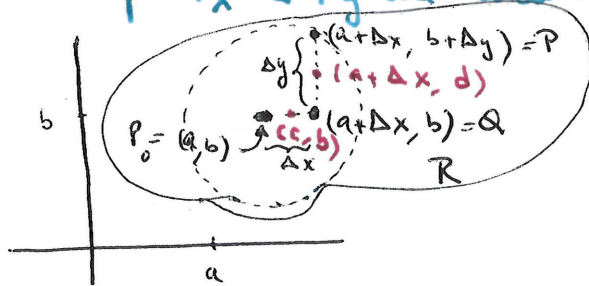 (a+Δx, b+Δy) = P
Δy
(a+Δx, d)
b
P₀ = (a,b)
(c,b)
(a+Δx, b) = Q
Δx
R
a